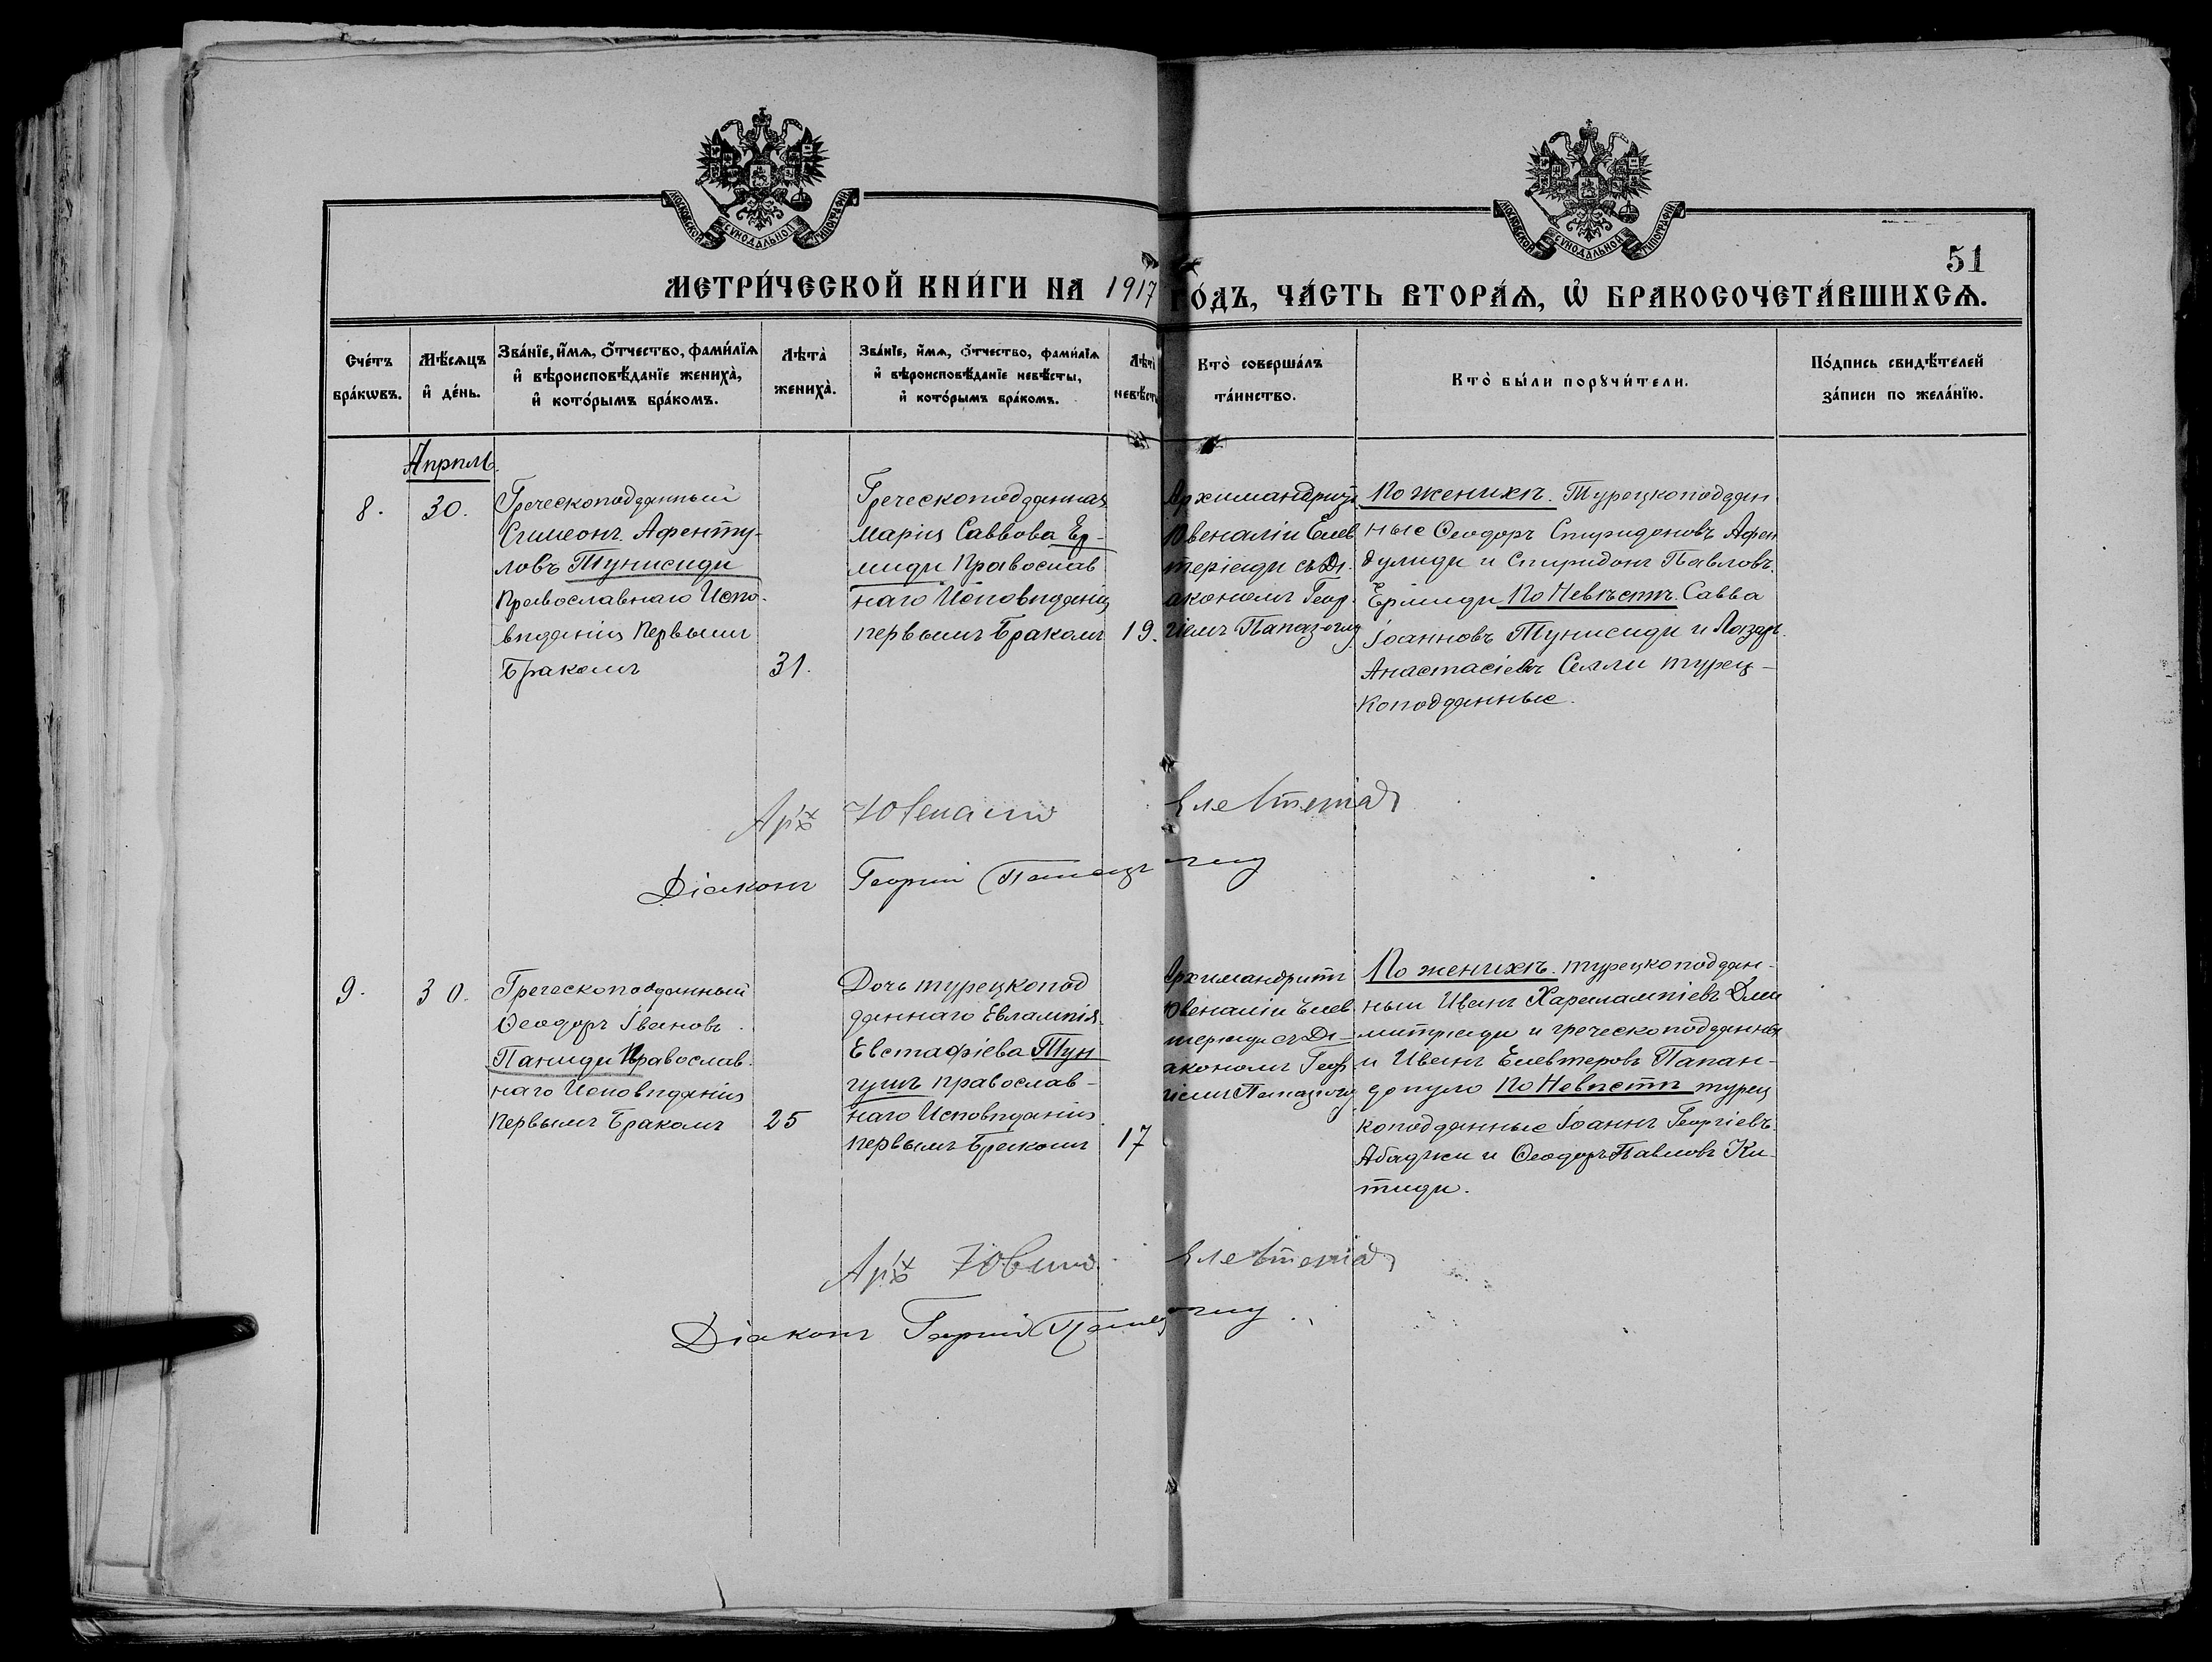 МОСКОВСКОЙ СУНОДАЛЬНОЙ ТИПОГРАФІИ
МОСКОВСКОЙ СУНОДАЛЬНОЙ ТИПОГРАФІИ
51
МЕТРИ́ЧЕСКОЙ КНИ́ГИ НА 1917 ГО́ДЪ, ЧА́СТЬ ВТОРА́Ѧ, Ѡ҆ БРАКОСОЧЕТА́ВШИХСѦ.
Сче́тъ
бра́кѡвъ.
Мѣ́сѧцъ
и҆ де́нь.
Зва́нїе, и҆́мѧ, ѻ҆́тчество, фами́лїѧ
и҆ вѣроисповѣ́данїе жениха̀,
и҆ кото́рымъ бра́комъ.
Лѣта̀
жениха̀.
Зва́нїе, и҆́мѧ, ѻ҆́тчество, фами́лїѧ
и҆ вѣроисповѣ́данїе невѣ́сты,
и҆ кото́рымъ бра́комъ.
Лѣта̀
невѣ́сты
Кто̀ соверша́лъ
та́инство.
Кто̀ бы́ли порꙋчи́тели.
По́дпись свидѣ́телей
за́писи по жела́нїю.
Апрѣль.
8.
30.
Греческоподданный
Симеонъ Афенту-
ловъ Тунисиди
Православнаго Испо-
вѣданія Первымъ
Бракомъ
31.
Греческоподданная
Марія Саввова Ер-
миди Православ
наго Исповѣданія
первымъ Бракомъ
19.
Архимандритъ
Ювеналіи Елев
теріади съ Ді-
акономъ Геор-
гіемъ Папаз-оглу
По женихѣ. Турецкоподдан
ные Ѳеодоръ Спиридоновъ Афен
дулиди и Спиридонъ Павловъ
Ермиди По Невѣстѣ. Савва
Іоанновъ Тунисиди и Лазарь
Анастасіевъ Селли турец-
коподданные.
Арх Ювеналіи Елевтеріад
Діаконъ Георгій Папазъ оглу
9.
30.
Греческоподданный
Ѳеодоръ Івановъ
Паниди Православ
наго Исповѣданія
Первымъ Бракомъ
25
Дочь турецкопод
даннаго Евлампія
Евстафіева Тун
гушъ православ-
наго Исповѣданія
первымъ Бракомъ
17
Архимандритъ
Ювеналіи Елев
теріади съ Ді-
акономъ Геор
гіемъ Папазъоглу
По женихѣ. турецкоподдан-
ный Иванъ Харалампіевъ Дми
митріади и греческоподданны
и Иванъ Елевтеровъ Папан-
допуло По Невѣстѣ турец
коподданные Іоаннъ Георгіевъ
Абаджи и Ѳеодоръ Павловъ Ки-
тиди.
Арх Елевтеріад
Діаконъ Георгій Папаз оглу